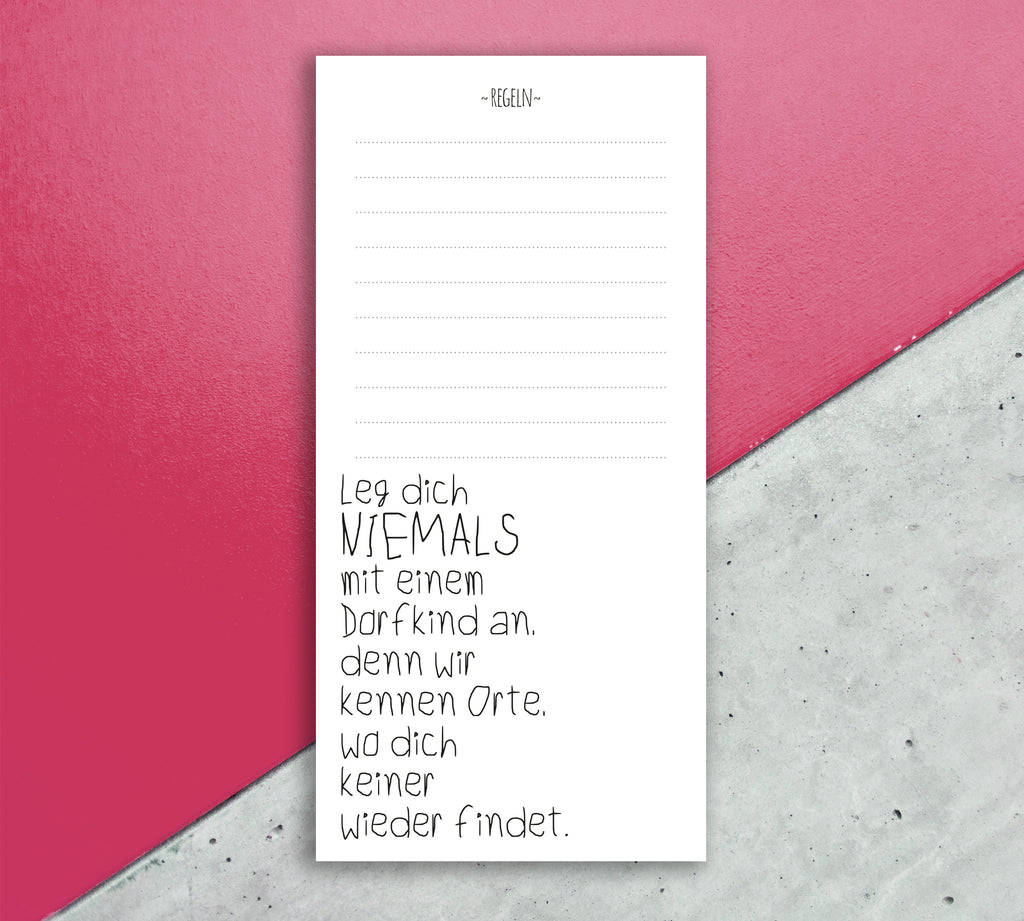 ~REGELN~
Leg dich
NIEMALS
mit einem
Dorfkind an,
denn wir
kennen Orte,
wo dich
keiner
wieder findet.